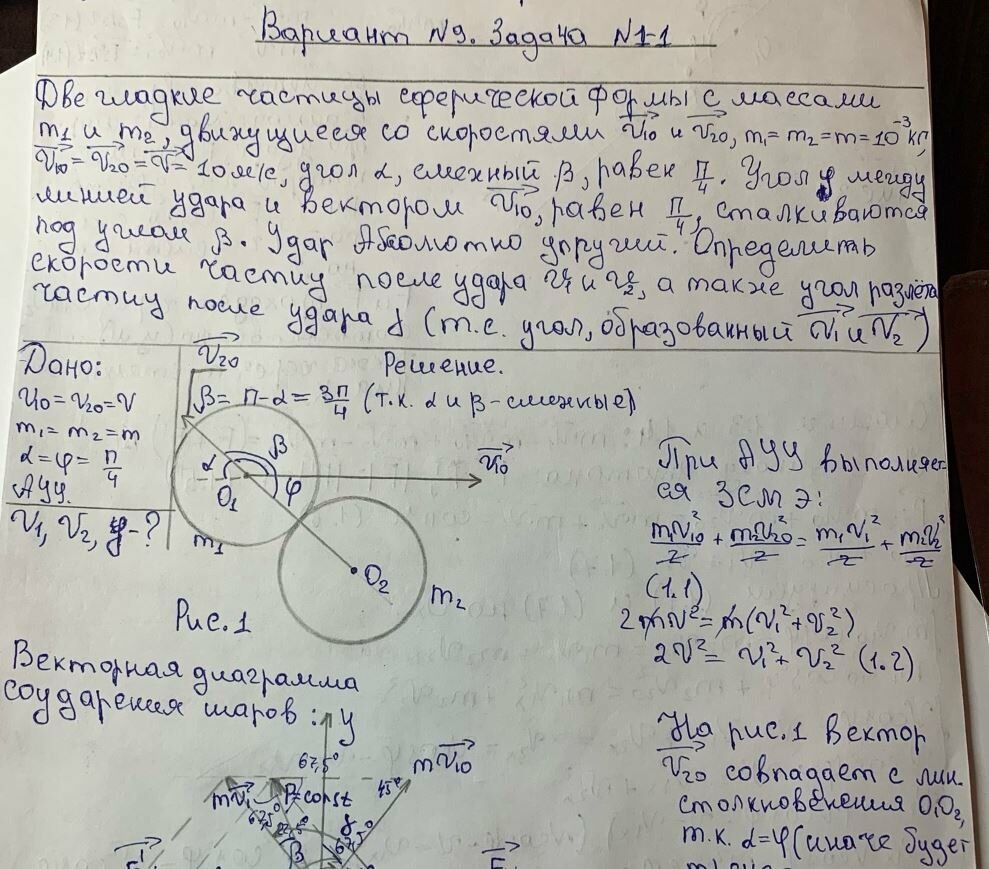 Вариант №9. Задача №1-1
Две гладкие частицы сферической формы с массами
m₁ и m₂, движущиеся со скоростями v₁₀ и v₂₀, m₁ = m₂ = m = 10⁻³ кг,
v₁₀ = v₂₀ = v = 10 м/с, угол α, смежный β, равен π/4. Угол φ между
линией удара и вектором v₁₀, равен π/4, сталкиваются
под углом β. Удар Абсолютно упругий. Определить
скорости частиц после удара v₁ и v₂, а также угол разлёта
частиц после удара γ (т.е. угол, образованный v₁ и v₂)
Дано:
v₁₀ = v₂₀ = v
m₁ = m₂ = m
α = φ = π/4
АУУ.
v₁, v₂, γ - ?
v₂₀
Решение.
β = π - α = 3π/4 (т.к. α и β - смежные)
v₁₀
α
β
φ
O₁
m₁
O₂
m₂
Рис. 1
При АУУ выполняет-
ся ЗСМЭ:
m₁v₁₀²/2 + m₂v₂₀²/2 = m₁v₁²/2 + m₂v₂²/2
(1.1)
2mv² = m(v₁² + v₂²)
2v² = v₁² + v₂² (1.2)
Векторная диаграмма
соударения шаров:
y
67,5°
mv₁
P=const
45°
mv₁₀
67,5°
22,5°
γ
67,5°
β
На рис. 1 вектор
v₂₀ совпадает с лин.
столкновения O₁O₂,
т.к. α=φ (иначе будет